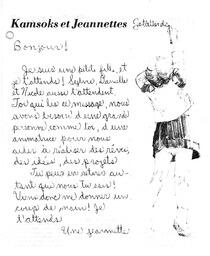 Kamsoks et Jeannettes
Je t'attends
Bonjour!
Je suis une petite fille, et
je t'attends! Sylvie, Danielle
et Nicole aussi t'attendent.
Toi qui lis ce message, nous
avons besoin d'une grande
personne comme toi, d'une
animatrice pour nous
aider à réaliser des rêves,
des idées, des projets
Tu peux en retirer au-
tant que nous tu sais!
Viens donc me donner un
coup de main! Je
t'attends
Une jeannette